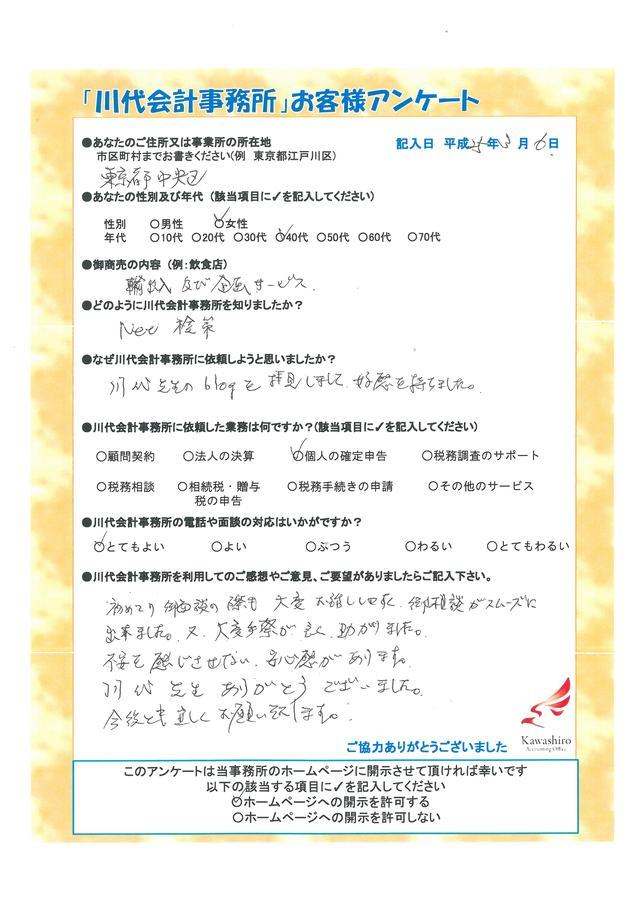 「川代会計事務所」お客様アンケート
●あなたのご住所又は事業所の所在地
記入日 平成25年3月6日
市区町村までお書きください(例 東京都江戸川区)
東京都中央区
●あなたの性別及び年代 (該当項目に✓を記入してください)
性別 ○男性 ○女性
年代 ○10代 ○20代 ○30代 ○40代 ○50代 ○60代 ○70代
●御商売の内容 (例:飲食店)
輸出入及び企画サービス.
●どのように川代会計事務所を知りましたか?
Net 検索
●なぜ川代会計事務所に依頼しようと思いましたか?
川代先生のblogを拝見しまして、好感を持ちました。
●川代会計事務所に依頼した業務は何ですか?(該当項目に✓を記入してください)
○顧問契約 ○法人の決算 ○個人の確定申告 ○税務調査のサポート
○税務相談 ○相続税・贈与 ○税務手続きの申請 ○その他のサービス
税の申告
●川代会計事務所の電話や面談の対応はいかがですか?
○とてもよい ○よい ○ぶつう ○わるい ○とてもわるい
●川代会計事務所を利用してのご感想やご意見、ご要望がありましたらご記入下さい。
初めての御面談の際も 大変お話しし易く、御相談がスムーズに
出来ました。又、大変手際が良く、助かりました。
不安を感じさせない、安心感があります。
川代先生ありがとうございました。
今後とも宜しくお願い致します。
Kawashiro
Accounting Office
ご協力ありがとうございました
このアンケートは当事務所のホームページに開示させて頂ければ幸いです
以下の該当する項目に✓を記入してください
○ホームページへの開示を許可する
○ホームページへの開示を許可しない